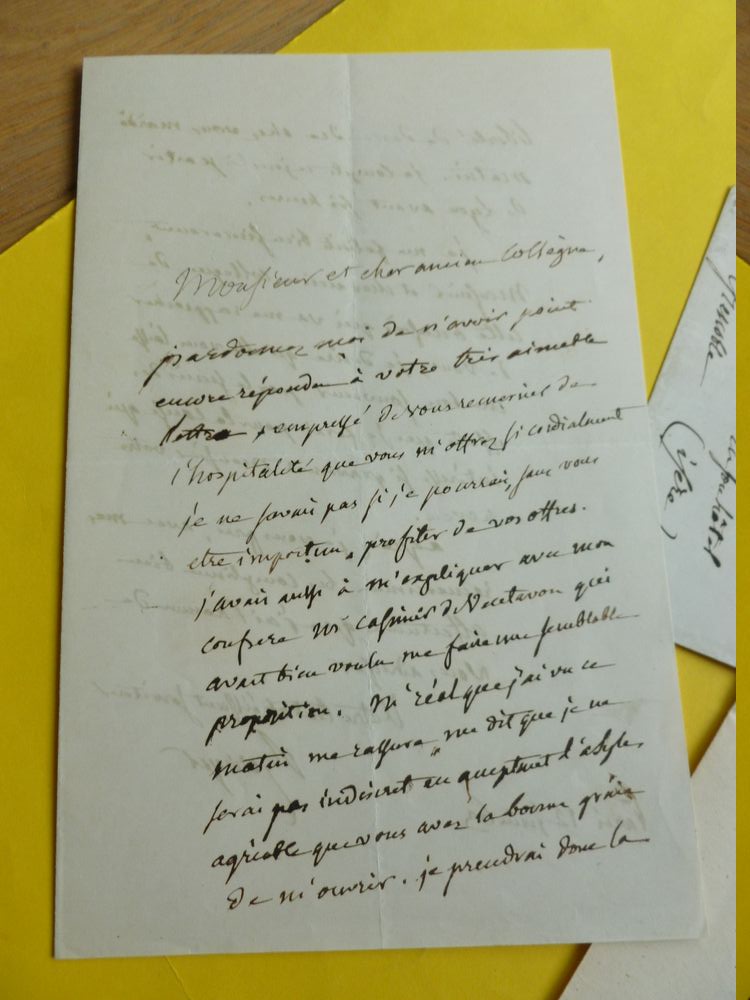 Monsieur et cher ancien Collègue,
pardonnez moi de n'avoir point
encore répondu à votre très aimable
lettre, empressé de vous remercier de
l'hospitalité que vous m'offrez si cordialement
je ne savais pas si je pourrais, sans vous
etre importun, profiter de vos offres.
j'avais aussi à m'expliquer avec mon
confrere Mr casimir de Ventavon qui
avait bien voulu me faire une semblable
proposition. Mr réal que j'ai vu ce
matin me rassure, me dit que je ne
serai pas indiscret en acceptant l'asyle
agréable que vous avez la bonne grâce
de m'ouvrir. je prendrai donc la
Grenoble
(isère)